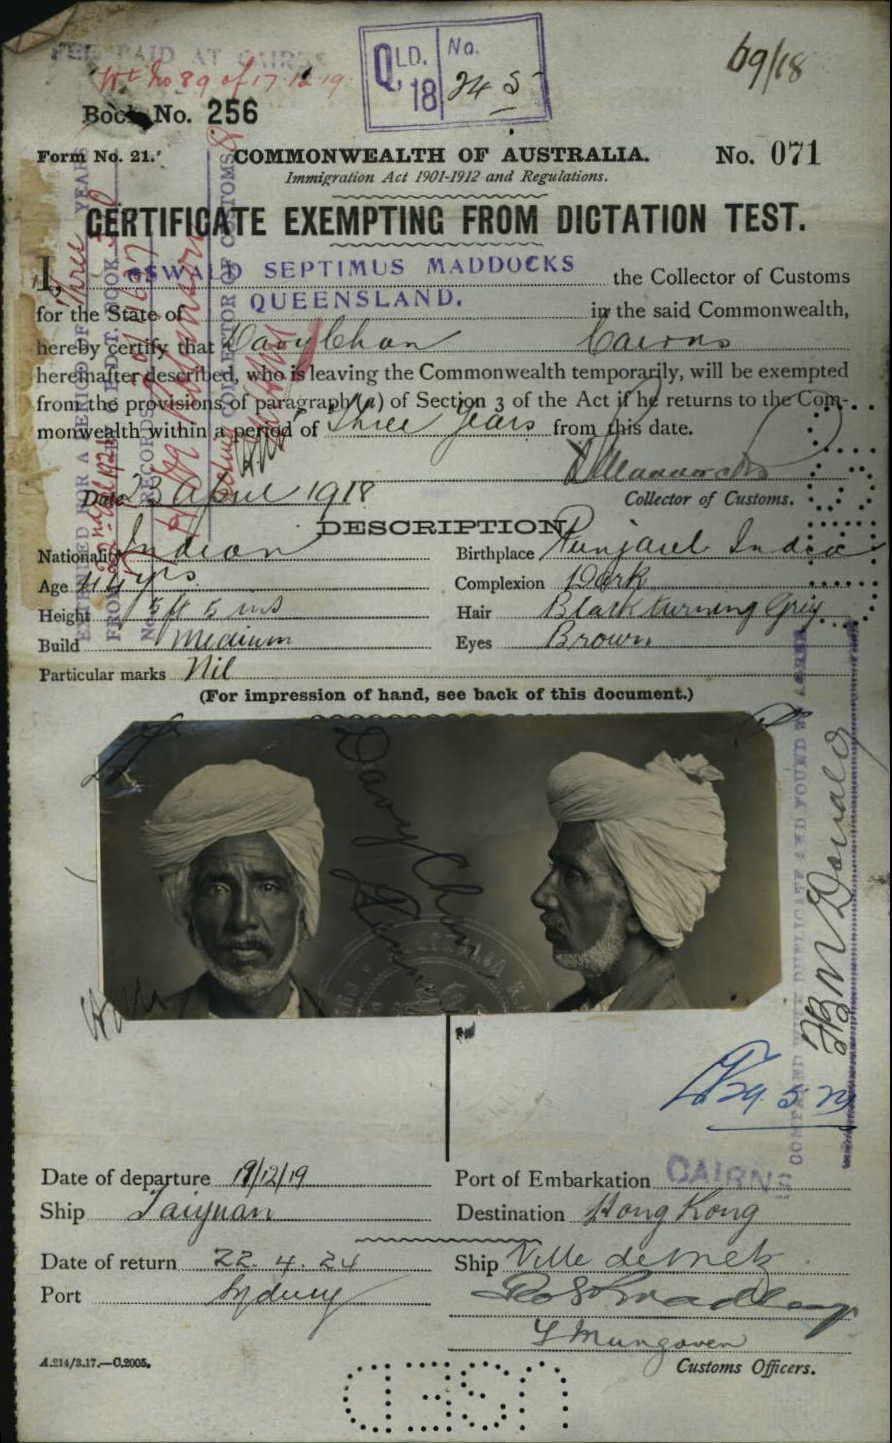 FEE PAID AT CAIRNS
No 89 of 17.12.19
QLD. 18 No. 24 5
69/18
Book No. 256
Form No. 21.
COMMONWEALTH OF AUSTRALIA.
No. 071
Immigration Act 1901-1912 and Regulations.
CERTIFICATE EXEMPTING FROM DICTATION TEST.
I, OSWALD SEPTIMUS MADDOCKS the Collector of Customs
for the State of QUEENSLAND. in the said Commonwealth,
hereby certify that Davy Chan Cairns
hereinafter described, who is leaving the Commonwealth temporarily, will be exempted
from the provisions of paragraph (a) of Section 3 of the Act if he returns to the Com-
monwealth within a period of Three Years from this date.
Date 23 April 1918
Collector of Customs.
DESCRIPTION
Nationality Indian
Birthplace Punjaub India
Age 44 yrs
Complexion Dark
Height 5 ft 5 ins
Hair Black turning Grey
Build Medium
Eyes Brown
Particular marks Nil
(For impression of hand, see back of this document.)
Davy Chan
Cairns
COMPARED WITH DUPLICATE AND FOUND TO AGREE
Date of departure 19/12/19
Port of Embarkation CAIRNS
Ship Taiyuan
Destination Hong Kong
Date of return 22. 4. 24
Ship Ville de Metz
Port Sydney
A.214/3.17.—C.2005.
Customs Officers.